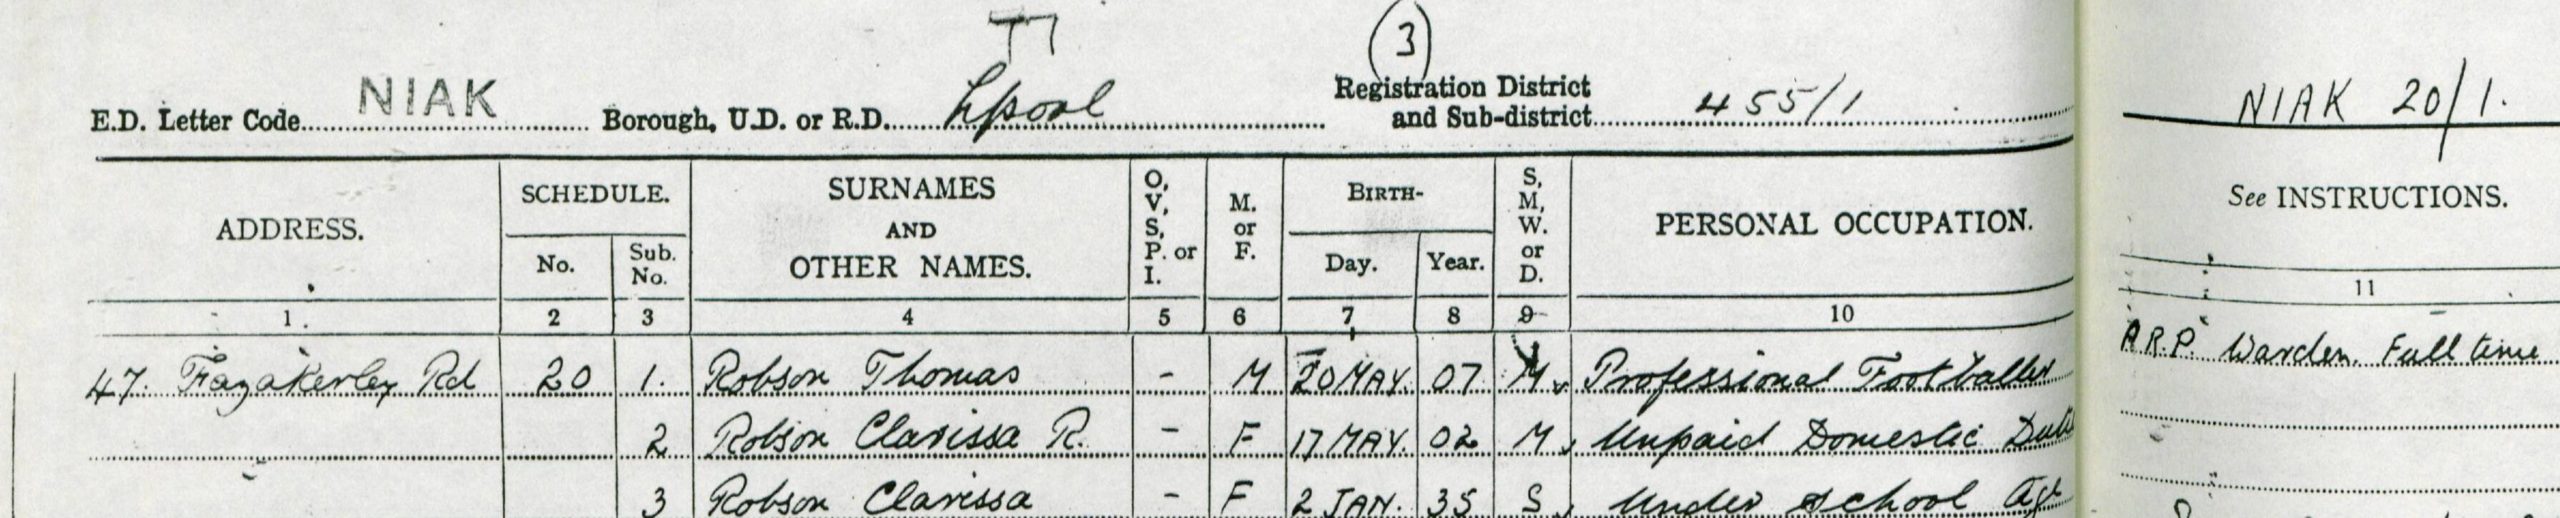 T7
(3)
E.D. Letter Code NIAK Borough, U.D. or R.D. Lpool Registration District and Sub-district 455/1 NIAK 20/1.
ADDRESS. SCHEDULE. SURNAMES AND OTHER NAMES. O, V, S, P. or I. M. or F. BIRTH- S, M, W. or D. PERSONAL OCCUPATION. See INSTRUCTIONS.
No. Sub. No. Day. Year.
1. 2 3 4 5 6 7 8 9 10 11
47. Fazakerley Rd 20 1. Robson Thomas - M 20 MAY. 07 M Professional Footballer A.R.P. Warden. Full time
2 Robson Clarissa R. - F 17 MAY. 02 M Unpaid Domestic Duti
3 Robson Clarissa - F 2 JAN. 35 S Under School Age